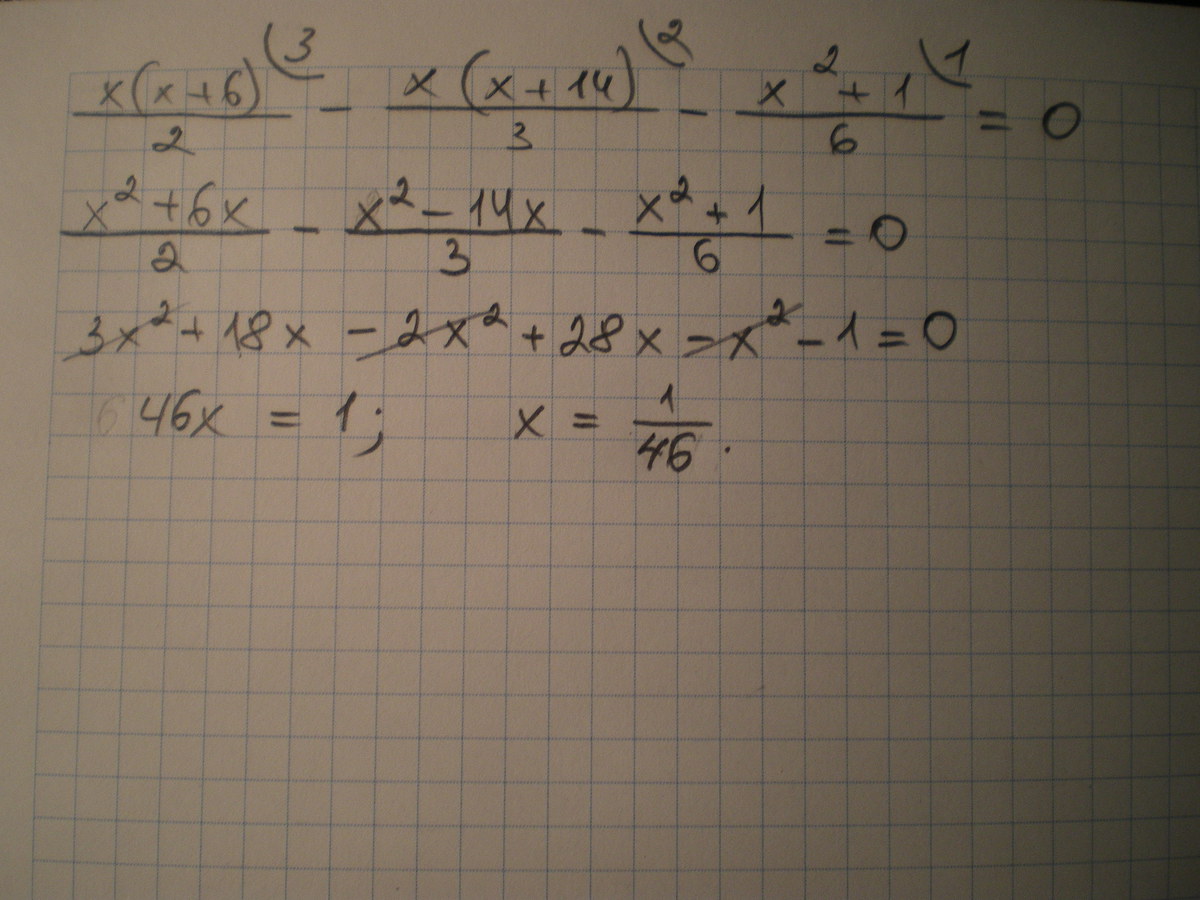 x(x+6)/2 (3 - x(x+14)/3 (2 - x²+1/6 (1 = 0
x²+6x/2 - x²-14x/3 - x²+1/6 = 0
3x² + 18x - 2x² + 28x - x² - 1 = 0
46x = 1; x = 1/46.